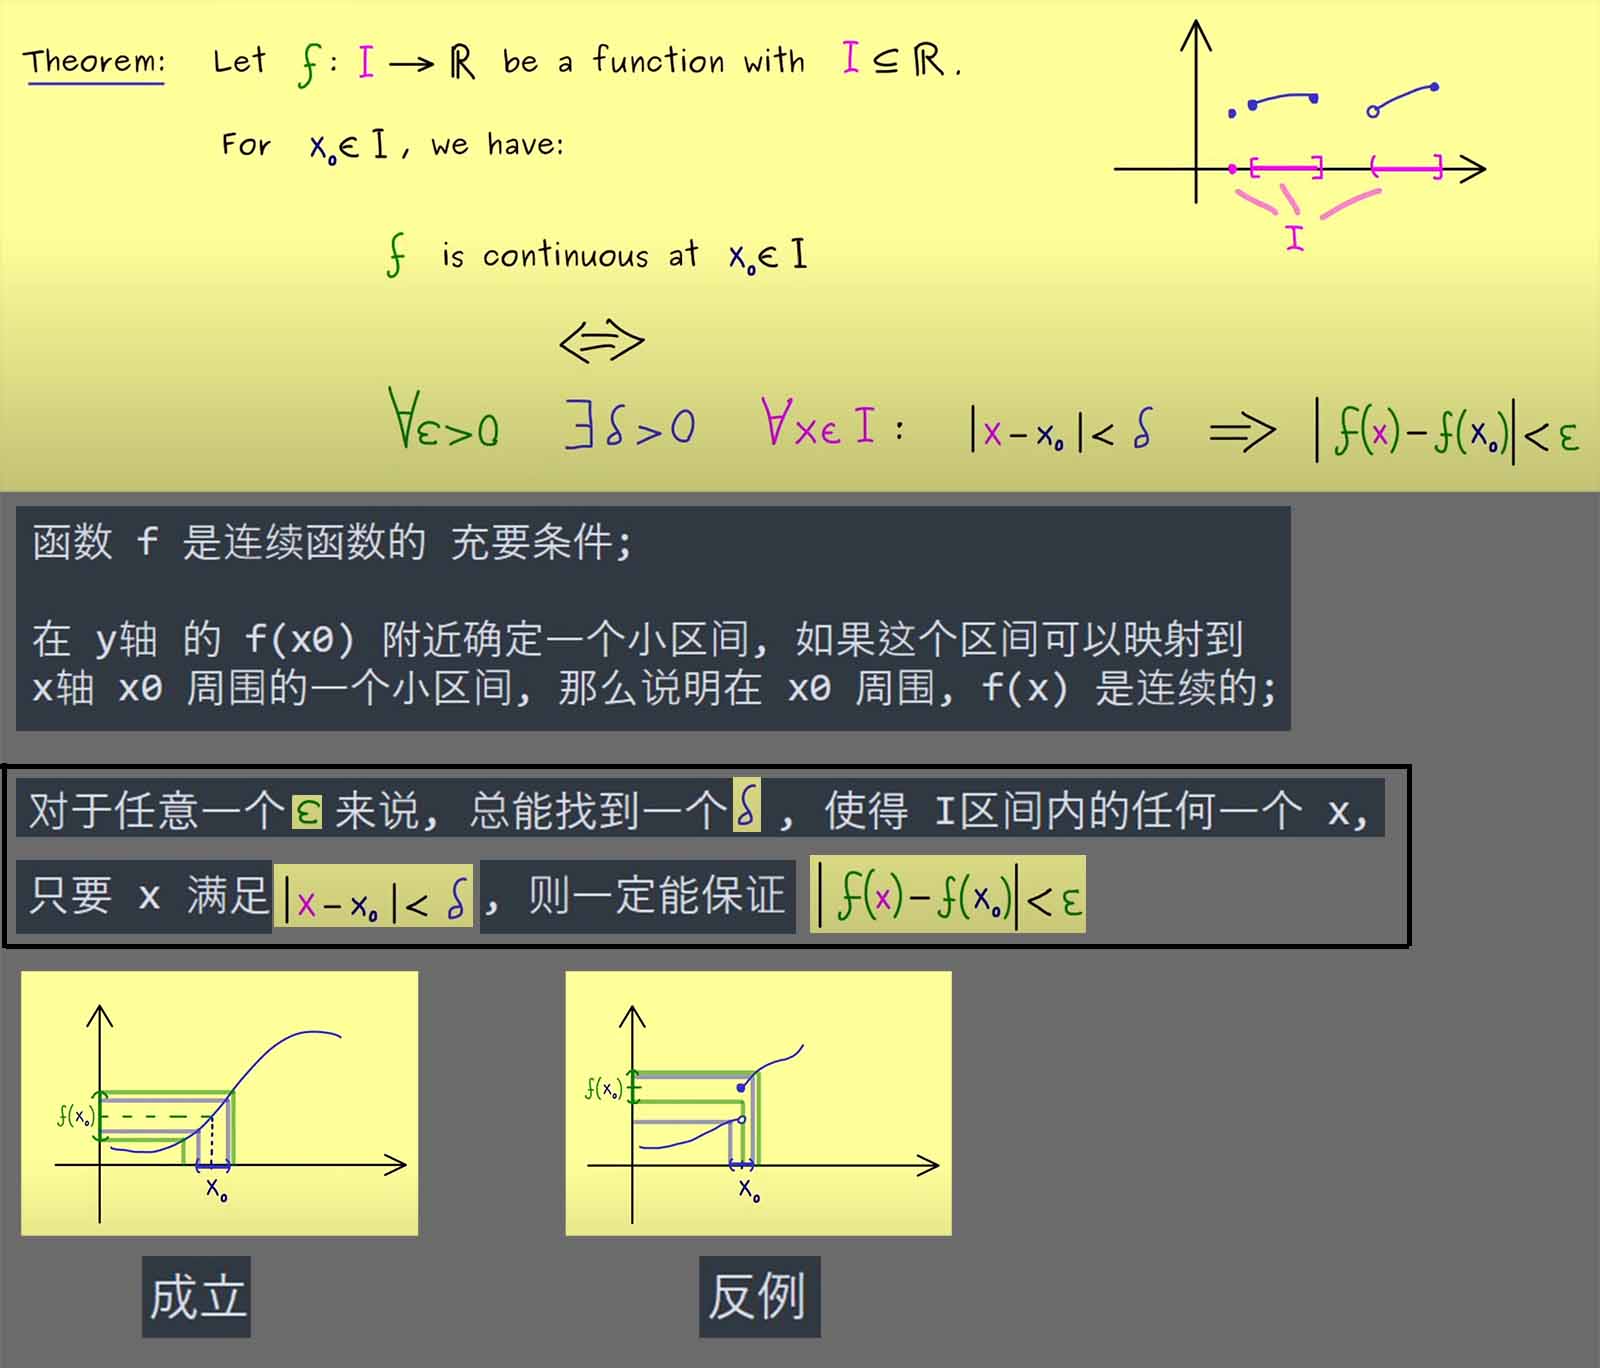 Theorem: Let f: I → ℝ be a function with I ⊆ ℝ.
For x₀ ∈ I, we have:
I
f is continuous at x₀ ∈ I
⟺
∀ε>0 ∃δ>0 ∀x∈I: |x-x₀|<δ ⟹ |f(x)-f(x₀)|<ε
函数 f 是连续函数的 充要条件;
在 y轴 的 f(x0) 附近确定一个小区间, 如果这个区间可以映射到
x轴 x0 周围的一个小区间, 那么说明在 x0 周围, f(x) 是连续的;
对于任意一个 ε 来说, 总能找到一个 δ , 使得 I区间内的任何一个 x,
只要 x 满足 |x-x₀|<δ , 则一定能保证 |f(x)-f(x₀)|<ε
f(x₀)
x₀
f(x₀)
x₀
成立
反例